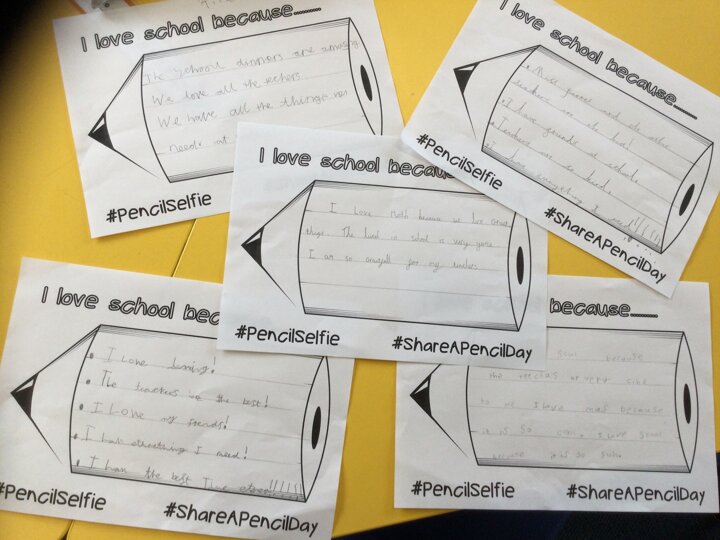 I love school because......
The school dinners are amazing
We love all the techers.
We have all the things we
needs at
#PencilSelfie
I love school because......
Miss and the other
teachers are the best!
I have friends at school.
Teachers are so kind.
I have everything I need!!!!!!
#PencilSelfie
#ShareAPencilDay
I love school because
I Love Math because we
things. The food in school is very
I am so for my teachers
#PencilSelfie
#ShareAPencilDay
I love school bec
I Love learning!
The teachers are the best!
I Love my friends!
I have everything I need!
I have the best Time ever!!!!!!
#PencilSelfie
#ShareAPencilDay
because......
because
the are very
to me I love because
it is so I love
because it is so
#PencilSelfie
#ShareAPencilDay